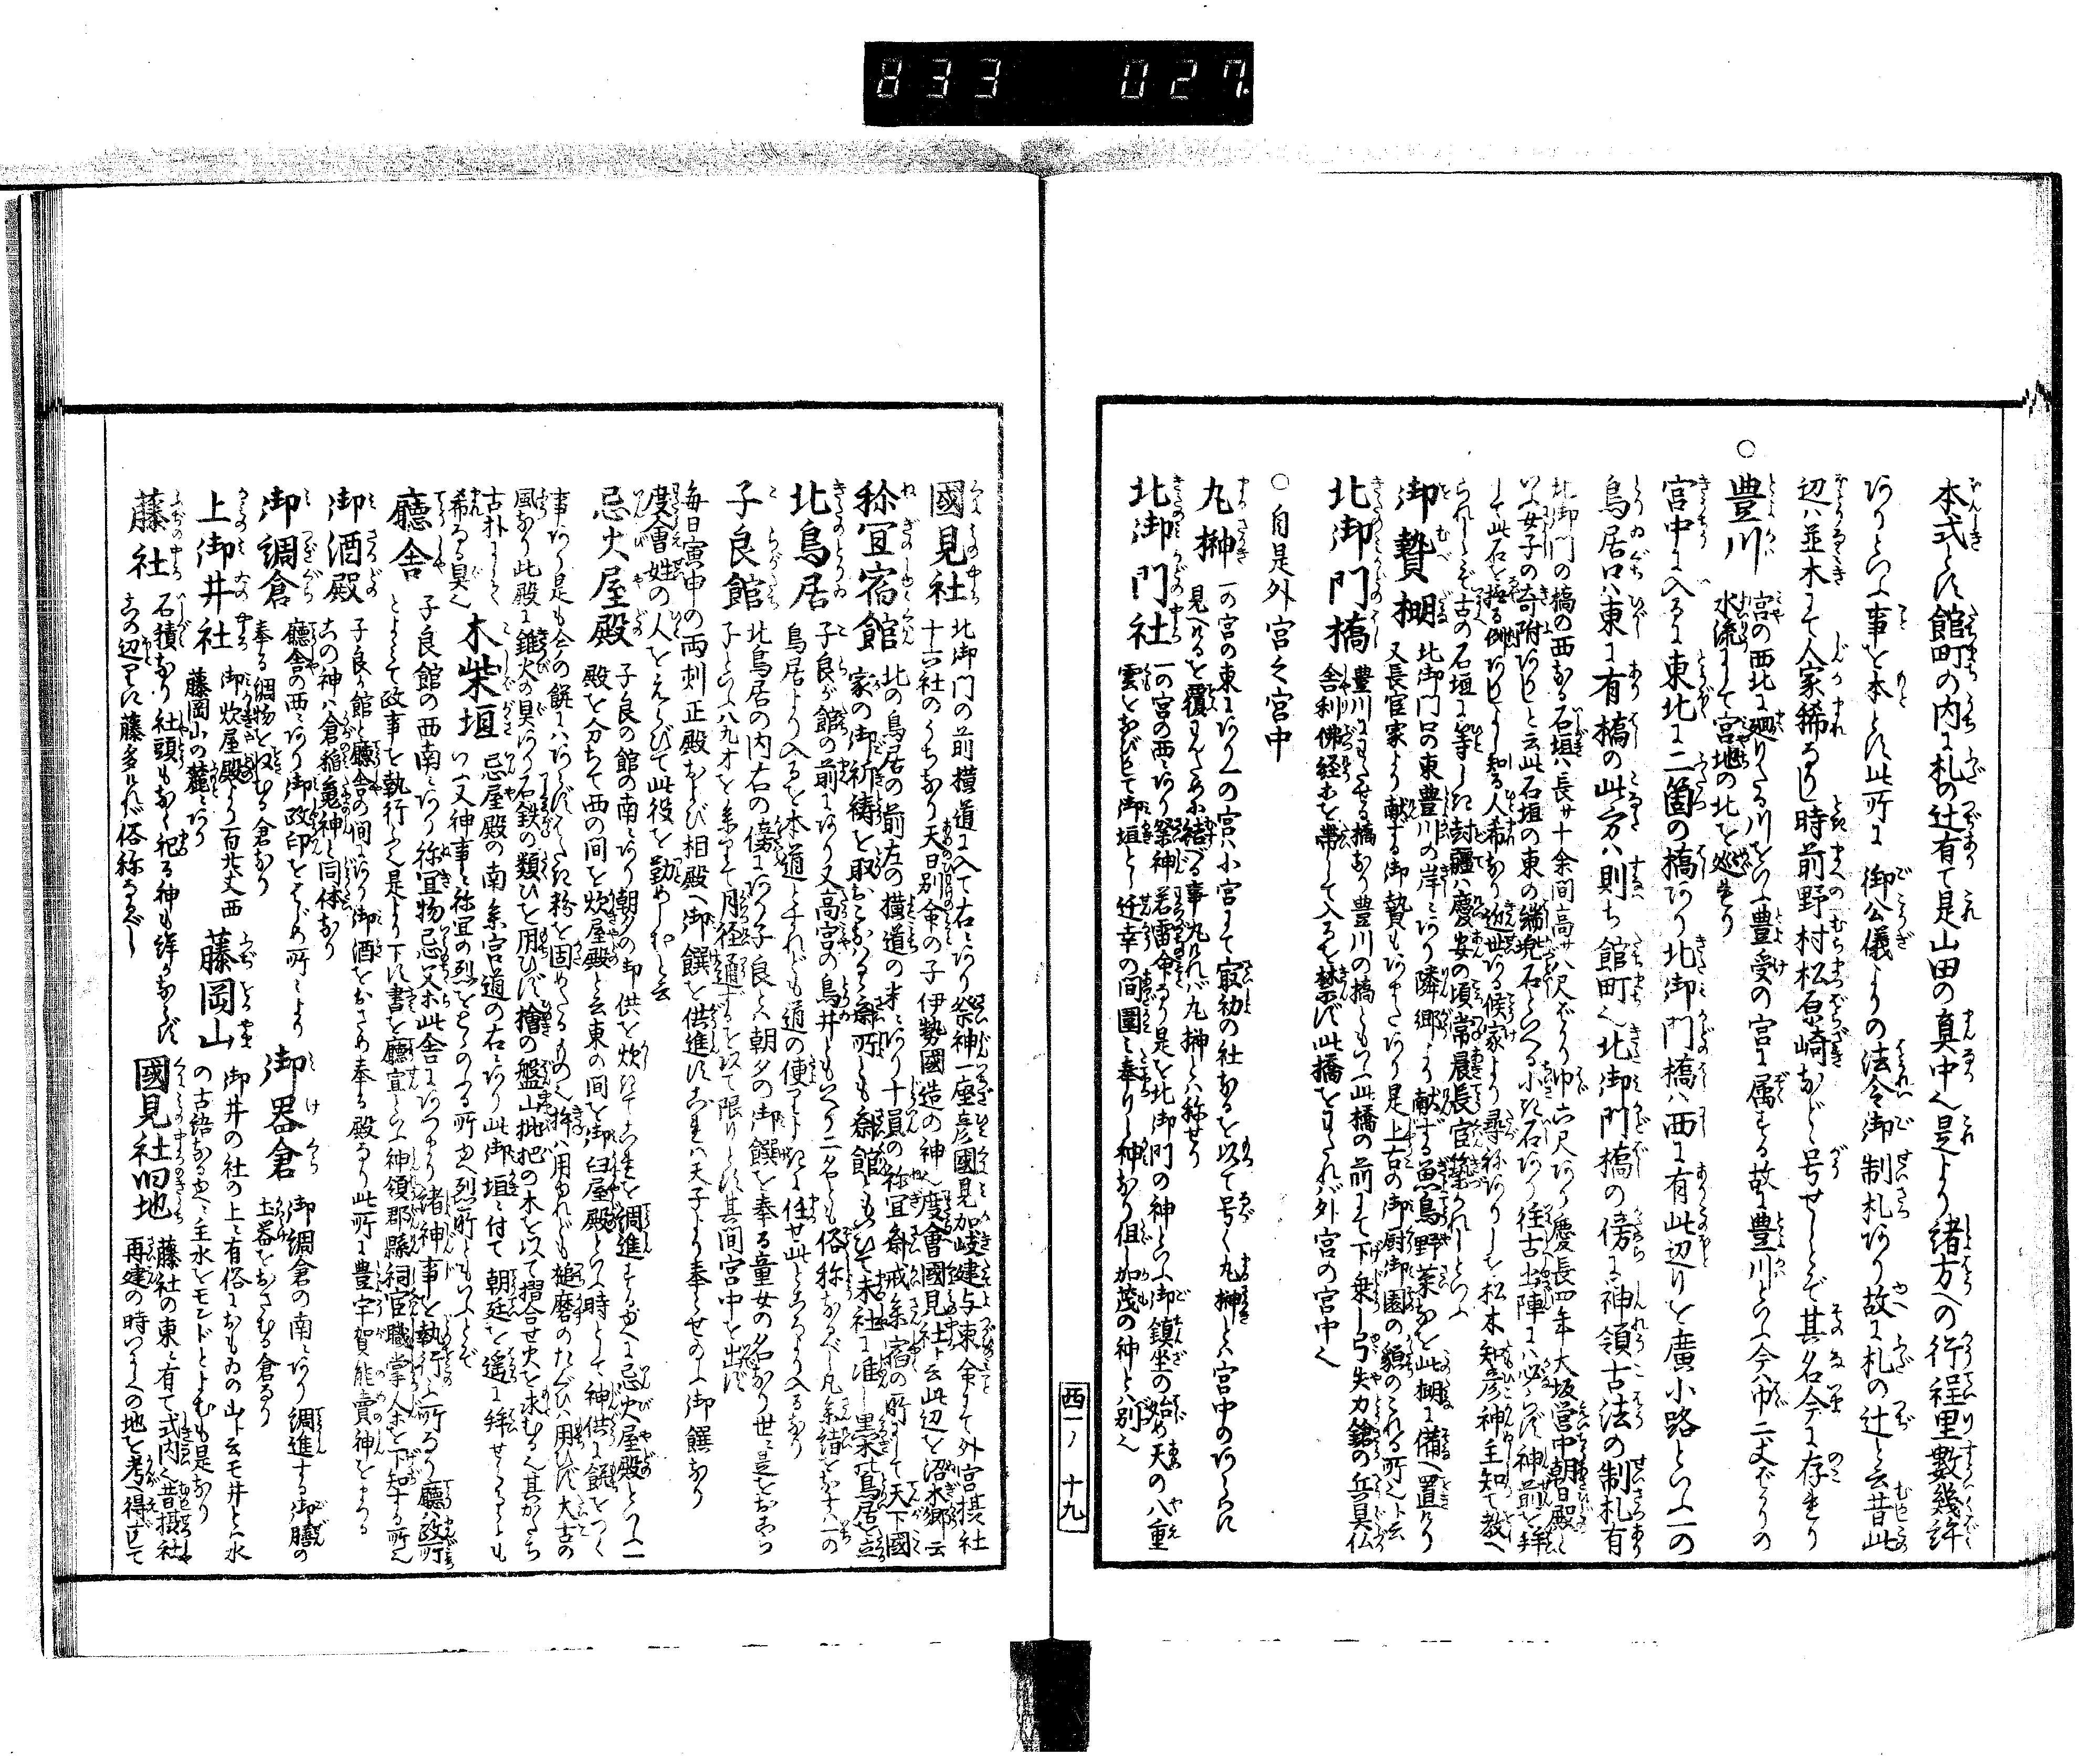 833 027.
本式とす館町の内に札の辻有て是山田の真中也是より諸方への行程里數幾許
ありといふ事を本とす此所に 御公儀よりの法令御制札あり故に札の辻と云昔此
辺ハ並木にて人家稀なりし時前野村松原崎など号せしとぞ其名今に存せり
○豊川 宮の西北に廻りたる川をいふ豊受の宮に属する故に豊川といふ今ハ巾二丈ばかりの
水流にして宮地の北を巡れり
宮中に入るに東北に二箇の橋あり北御門橋ハ西に有此辺りを廣小路といふ一の
鳥居口ハ東に有橋の此方ハ則ち館町也北御門橋の傍に神領古法の制札有
北御門の橋の西なる石垣ハ長サ十余間高サ八尺ばかり巾六尺あり慶長四年大坂営中朝日殿と
いふ女子の寄附ありしと云此石垣の東の端兜石といへる小き石あり往古出陣にハ必らず神前を拝
して此石を撫る例ありしよし知る人希なり近世ある候家より尋ねありしを松木知彦神主知て教へ
られしとぞ古の石垣に等しき封疆ハ慶安の頃常晨長官築かれしといふ
御贄棚 北御門口の東豊川の岸にあり隣郷より献ずる魚鳥野菜などを此棚に備へ置けり
又長官家より献ずる御贄もありまたあり是上古の御厨御園の貌のこれる所也と云
北御門橋 豊川にわたせる橋なり豊川の橋ともいふ此橋の前にて下乗し弓矢刀鎗の兵具仏
舎利佛経等を帯して入るを禁ず此橋をわたれバ外宮の宮中也
○自是外宮之宮中
九榊 一の宮の東にあり一の宮ハ小宮にて寂初の社なるを以て号く九榊とハ宮中のあらはに
見へけるを覆はんため小結べる事九けれバ九榊とハ称せり
北御門社 一の宮の西にあり祭神若雷命なり是を北御門の神といふ御鎮坐の始め天の八重
雲をなびして御垣とし迁幸の間圍ミ奉りし神なり但し加茂の神とハ別也
西一ノ 十九
國見社 北御門の前横道に入て右にあり祭神一座彦國見加岐建与束命にて外宮摂社
十六社のうちなり天日別命の子伊勢國造の神也度會國見社と云此辺を沼水郷と云
祢宜宿館 北の鳥居の前左の横道の末にあり十員の祢宜斎戒参宿の所にして天下國
家の御祈祷を取おこなはる斎所とも斎館ともいひて末社に准し黒木の鳥居を立
北鳥居 子良が館の前にあり又高宮の鳥井ともいへり二名とも俗称なるべし凡参詣をなす人一の
鳥居より入るを本道とすれども道の便りよきに任せ此ところより入るなり
子良館 北鳥居の内右の傍にあり子良ハ朝夕の御饌を奉る童女の名なり世に是をおこら
子といふ八九才を参りて月経通ずるを以て限りとす其間宮中を出ず
毎日寅申の両刺正殿および相殿へ御饌を供進す忌をハ天子より奉らせのふ御饌なり
度會姓の人をえらびて此役を勤めしむと云
忌火屋殿 子良の館の南にあり朝夕の御供を炊ぎてこれを調進する也へに忌火屋殿といふ一
殿を分ちて西の間を炊屋殿と云東の間を御臼屋殿といふ時として神供に餅をつく
事あり是も今の餅にハあらずいたき粉を固めたるもの也杵ハ用ゆれども槌磨のたぐひハ用ひず大古の
風なり此殿に錐火の具あり石鉄の類ひを用ひず檜の盤山枇杷の木を以て摺合せ火を求むる也其かたち
古朴にして
希なる具也 木柴垣 忌屋殿の南参宮道の右にあり此御垣に付て朝廷を遥に拝せらるゝも
いふ又神事に祢宜の烈をとゝのふる所也へ烈所ともいふとぞ
廳舎 子良館の西南にあり祢宜物忌父等此舎にあつまり諸神事を執行ふ所なり廳ハ政所
とよミて政事を執行ふ是より下す書を廳宣といふ神領郡縣祠官職掌人等を下知する所也
御酒殿 子良が館と廳舎の間にあり御酒をおさめ奉る殿なり此所に豊宇賀能賣神をまつる
この神ハ倉稲䰠神と同体なり
御綱倉 廳舎の西にあり御政印をはじめ所々より
奉る綱物を収むる倉なり 御器倉 御綱倉の南にあり調進する御膳の
土器をおさむる倉なり
上御井社 御炊屋殿より百廿丈西
藤岡山の麓にあり 藤岡山 御井の社の上に有俗におもゐの山と云モ井とハ水
の古語なる也へ主水をモンドとよむも是なり
藤社 石積なり社頭もなく祀る神も詳ならず
この辺りに藤多けれバ俗称なるべし 國見社旧地 藤社の東に有て式内也昔摂社
再建の時いにしへの地を考へ得ずして